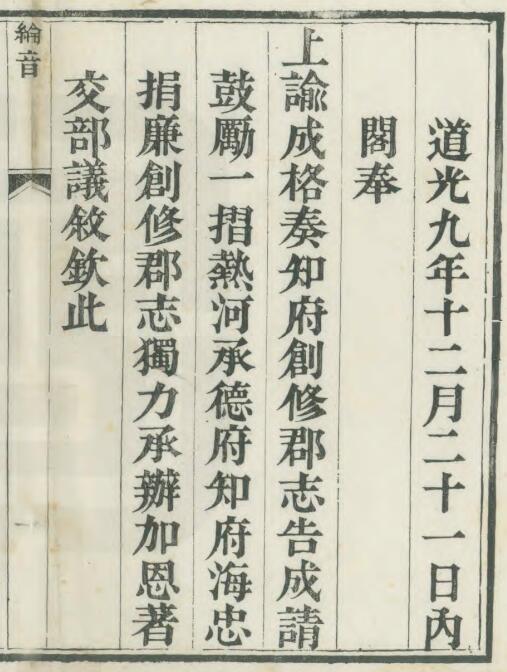 道光九年十二月二十一日內
閣奉
上諭成格奏知府創修郡志告成請
鼓勵一摺熱河承德府知府海忠
捐廉創修郡志獨力承辦加恩著
交部議敘欽此
綸音
一